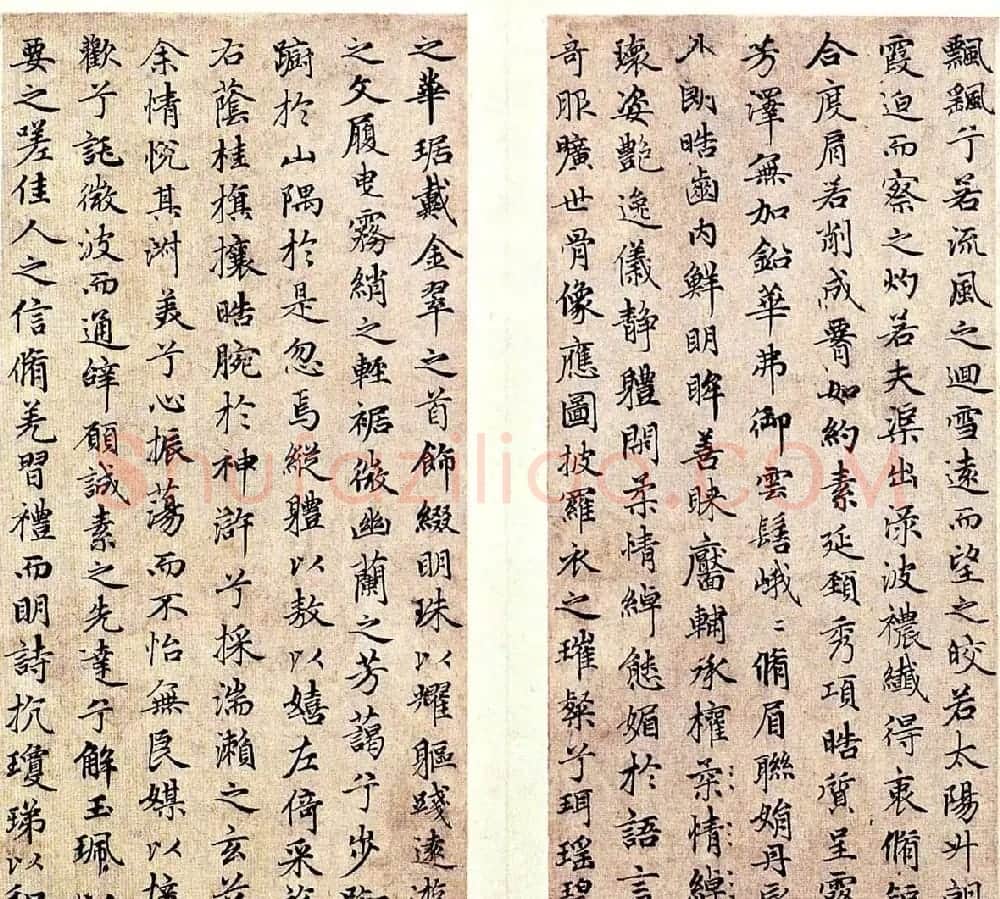 飄飖兮若流風之迴雪遠而望之皎若太陽升朝
霞迫而察之灼若夫渠出淥波襛纖得衷脩短
合度肩若削成腰如約素延頸秀項皓質呈露
芳澤無加鉛華弗御雲髻峨〻脩眉聯娟丹唇
外朗皓齒內鮮明眸善睞靨輔承權柔情綽
瓌姿艷逸儀靜體閑柔情綽態媚於語言
奇服曠世骨像應圖披羅衣之璀粲兮珥瑤碧
之華琚戴金翠之首飾綴明珠以耀軀踐遠遊
之文履曳霧綃之輕裾微幽蘭之芳藹兮步踟
躕於山隅於是忽焉縱體以敖以嬉左倚采
右蔭桂旗攘皓腕於神滸兮採湍瀨之玄芝
余情悅其淑美兮心振蕩而不怡無良媒以接
歡兮託微波而通辭願誠素之先達兮解玉珮以
要之嗟佳人之信脩羌習禮而明詩抗瓊珶以和
Shufaziliao.COM